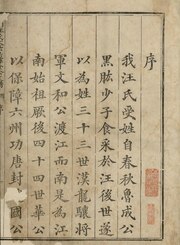 序
我汪氏受姓自春秋魯成公
黑肱少子食采於汪後世遂
以為姓三十三世漢龍驤將
軍文和公渡江而南是為江
南始祖厥後四十四世華公
以保障六州功唐封國公